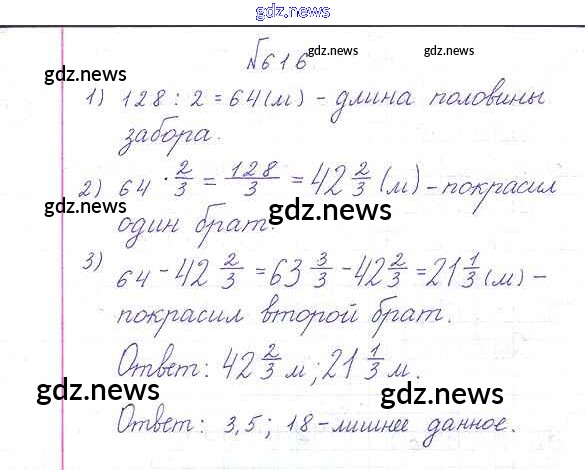 gdz.news
№616
gdz.news
gdz.news
gdz.news
1) 128 : 2 = 64 (м) - длина половины
забора.
2) 64 · 2/3 = 128/3 = 42 2/3 (м) - покрасил
gdz.news
gdz.news
один брат.
3) 64 - 42 2/3 = 63 3/3 - 42 2/3 = 21 1/3 (м) -
покрасил второй брат.
Ответ: 42 2/3 м; 21 1/3 м.
gdz.news
gdz.news
Ответ: 3,5; 18 - лишнее данное.
gdz.news
gdz.news